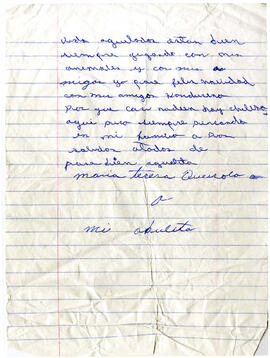 aguelados estan bien
siempre jugando con mis
animales y con mis a
migas yo pase felis navidad
con mis amigos hondureño
Por que casi nadien hay chileno
aqui pero siempre pensando
en mi familia a Dios
saludos a todos de
para bien aguelita
Maria Teresa
y
mi abuelita